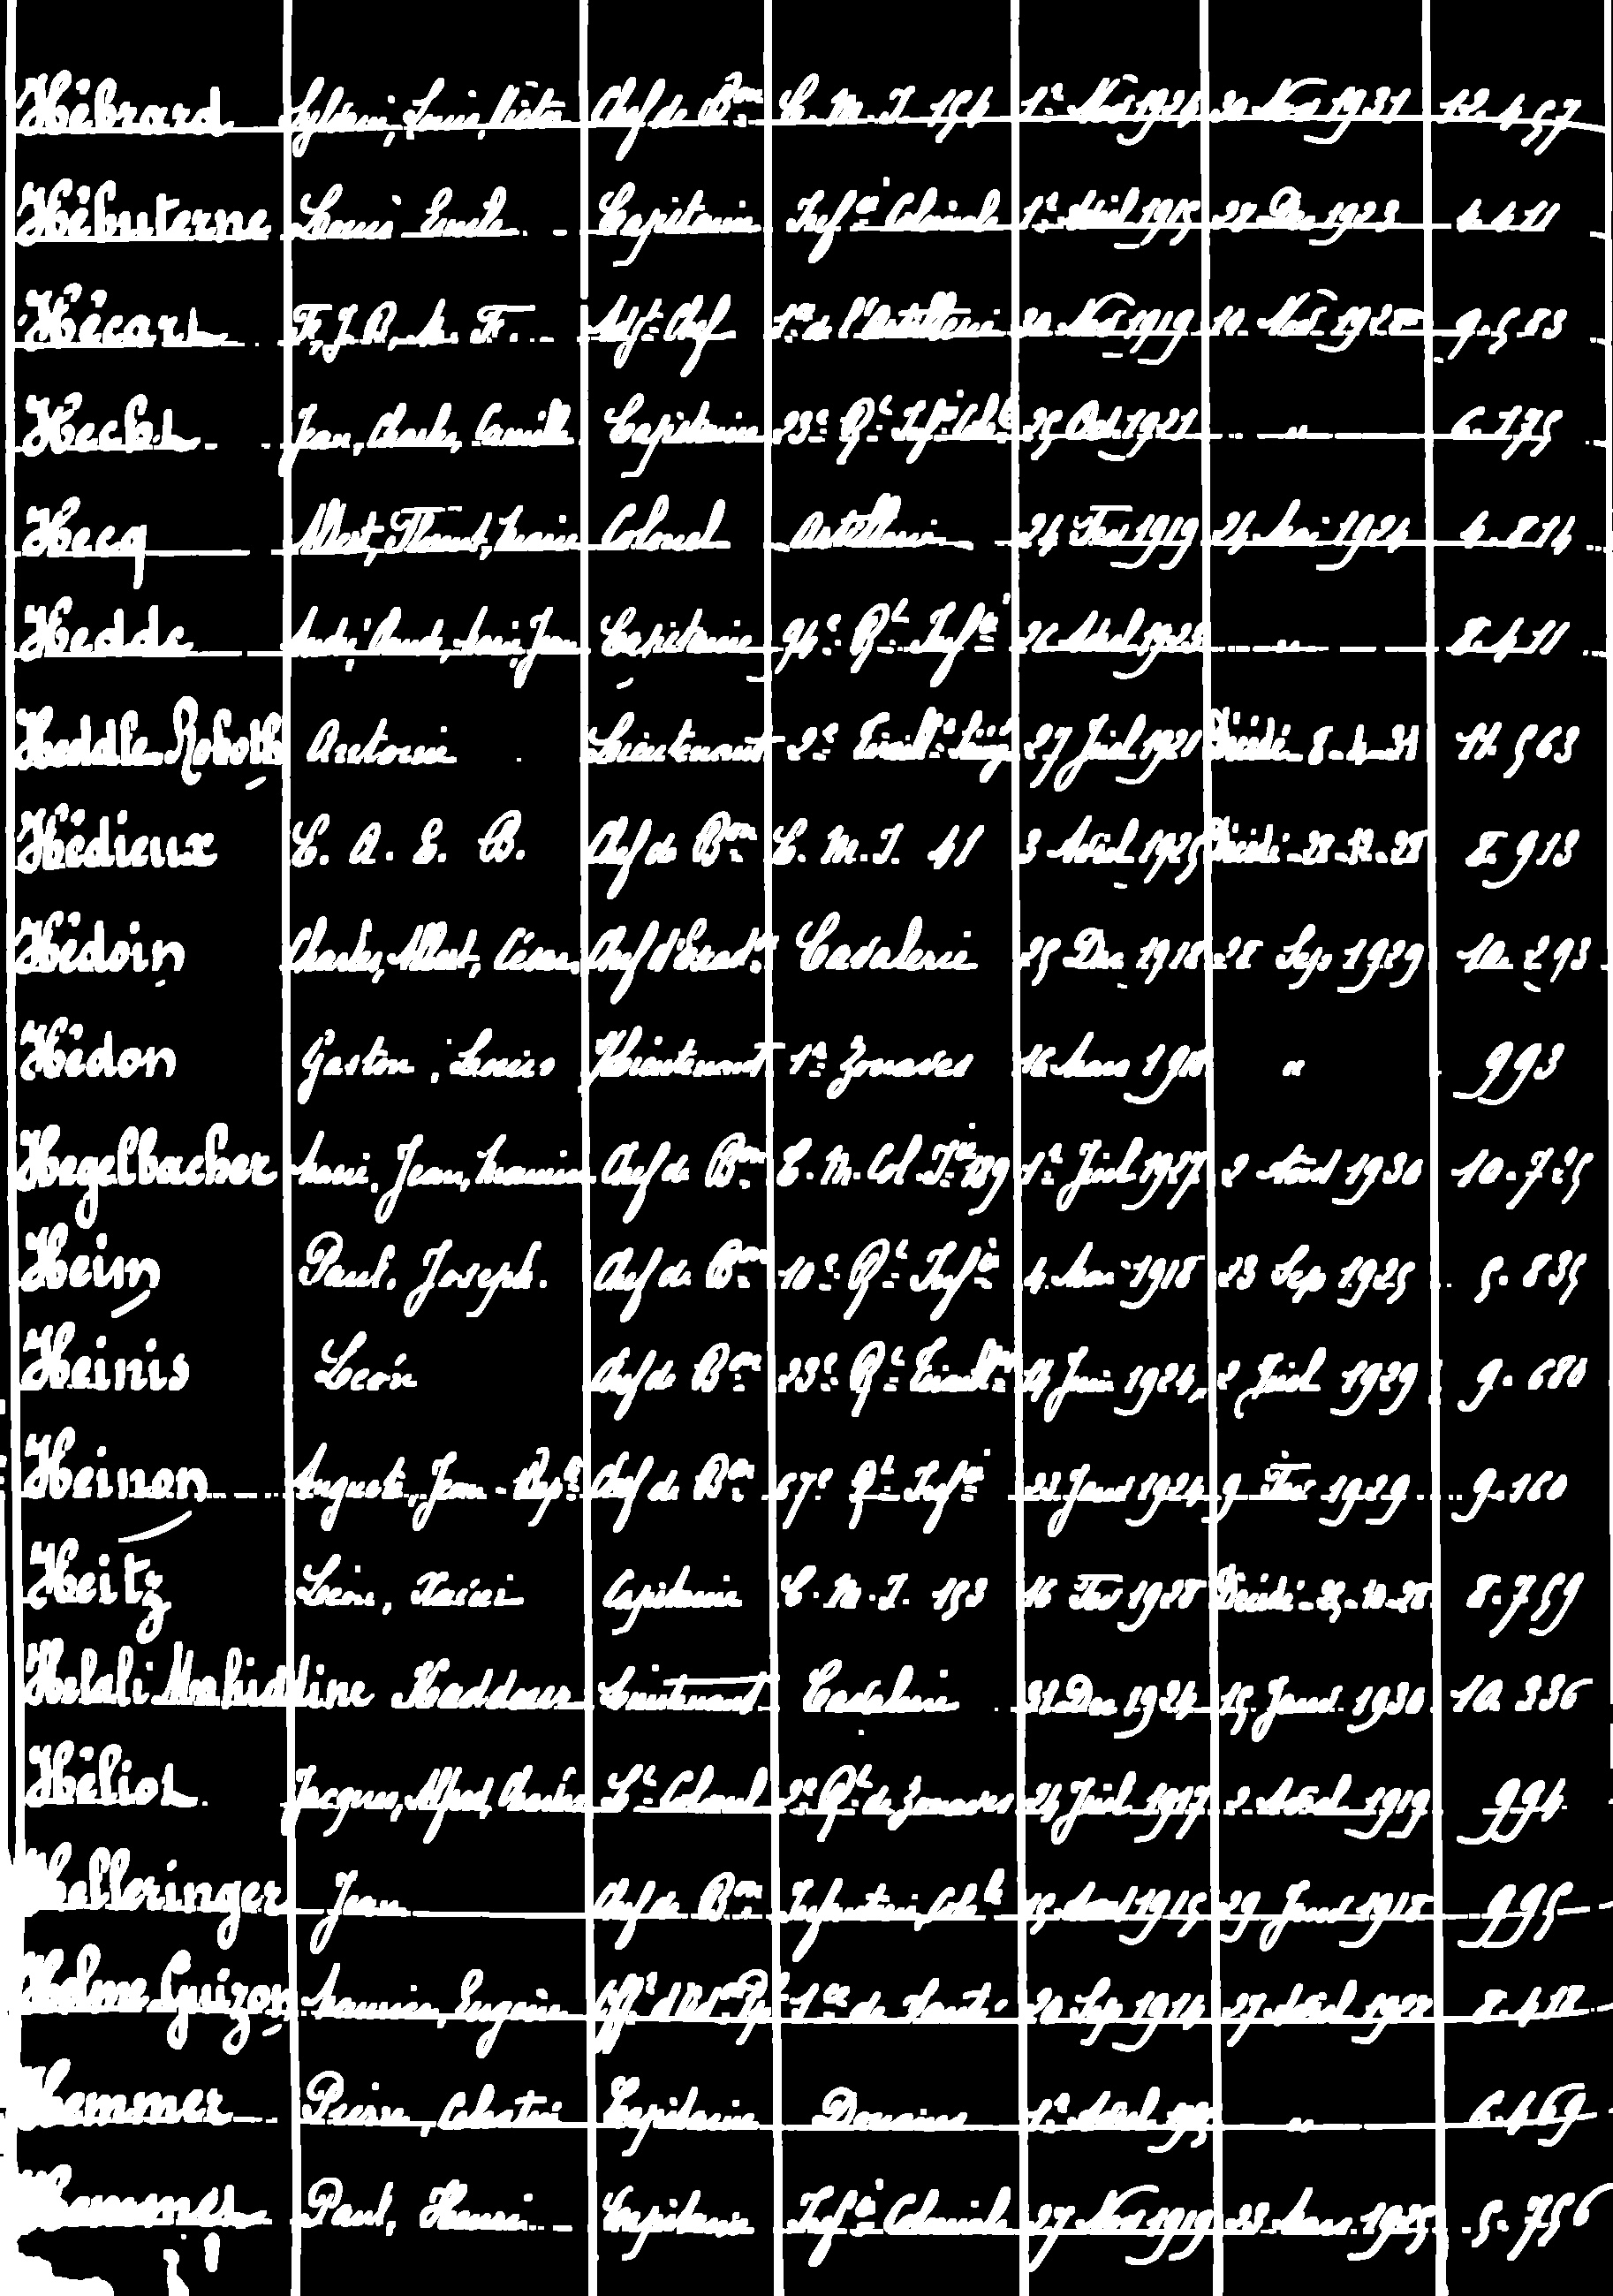 Hébrard Sylvain, Louis, Victor Chef de Bon C. M. I. 154 1er Nov 1924 30 Nov 1931 12.457
Hébuterne Louis Emile Capitaine Infie Coloniale 1er Avril 1915 22 Dec 1923 4.411
Hécart F, J, B, M. F. Adjt Chef 1re de l'Artillerie 20 Nov 1919 10 Nov 1928 9.583
Hecht Jean, Charles, Camille Capitaine 23e Rt Infie Colle 25 Oct 1921 " 6.175
Hecq Albert, Florent, Marie Colonel Artillerie 24 Fev 1919 24 Mai 1924 4.814
Hedde André, Claude, Marie, Jean Capitaine 94e Rt Infie 26 Avril 1923 " 8.411
Heddle Roboth Antoine Lieutenant 2e Tiraillrs 27 Juil 1921 Décédé 8-4-31 11.563
Hédieux C. A. E. B. Chef de Bon C. M. I. 41 3 Avril 1925 Décédé-28-12-28 8.913
Hédoin Charles, Albert, César, Chef d'Escadn Cavalerie 25 Dec 1918 28 Sep 1929 10.293
Hédon Gaston, Louis Lieutenant 1er Zouaves 16 Mars 1918 " 993
Hegelbacher Marie, Jean, Maurice Chef de Bon C. M. Col. Ie 189 1er Juil 1927 2 Aout 1930 10.725
Heim Paul, Joseph. Chef de Bon 10e Rt Infie 4 Mai 1918 23 Sep 1925 5.835
Heinis Léon Chef de Bon 23e Rt Tiraillrs 14 Juin 1924, 2 Juil 1929 9.680
Heinon Auguste, Jean-Bapte Chef de Bon 67e Rt Infie 23 Janv 1924 9 Fev 1929 9.160
Heitz Léon, Xavier Capitaine C. M. I. 153 16 Fev 1928 Décédé-25-10-28 8.759
Helali Mahiddine Kaddour Lieutenant Cavalerie 31 Dec 1924 15 Janv 1930 10.336
Héliot Jacques, Alfred, Charles Lt Colonel 2e Rt de Zouaves 24 Juil 1917 2 Avril 1919 994
Helleringer Jean Chef de Bon Infanterie Colle 15 Avril 1915 29 Janv 1918 995
Helme Guizon Maurice, Eugène Offr d'Adon Ppl 1re de Santé 20 Sep 1914 27 Avril 1928 8.418
Hemmer Pierre, Célestin Capitaine Douanes 1er Avril " 6.469
Hemmes Paul, Henri Capitaine Infie Coloniale 27 Nov 1919 23 Mars 1925 5.756